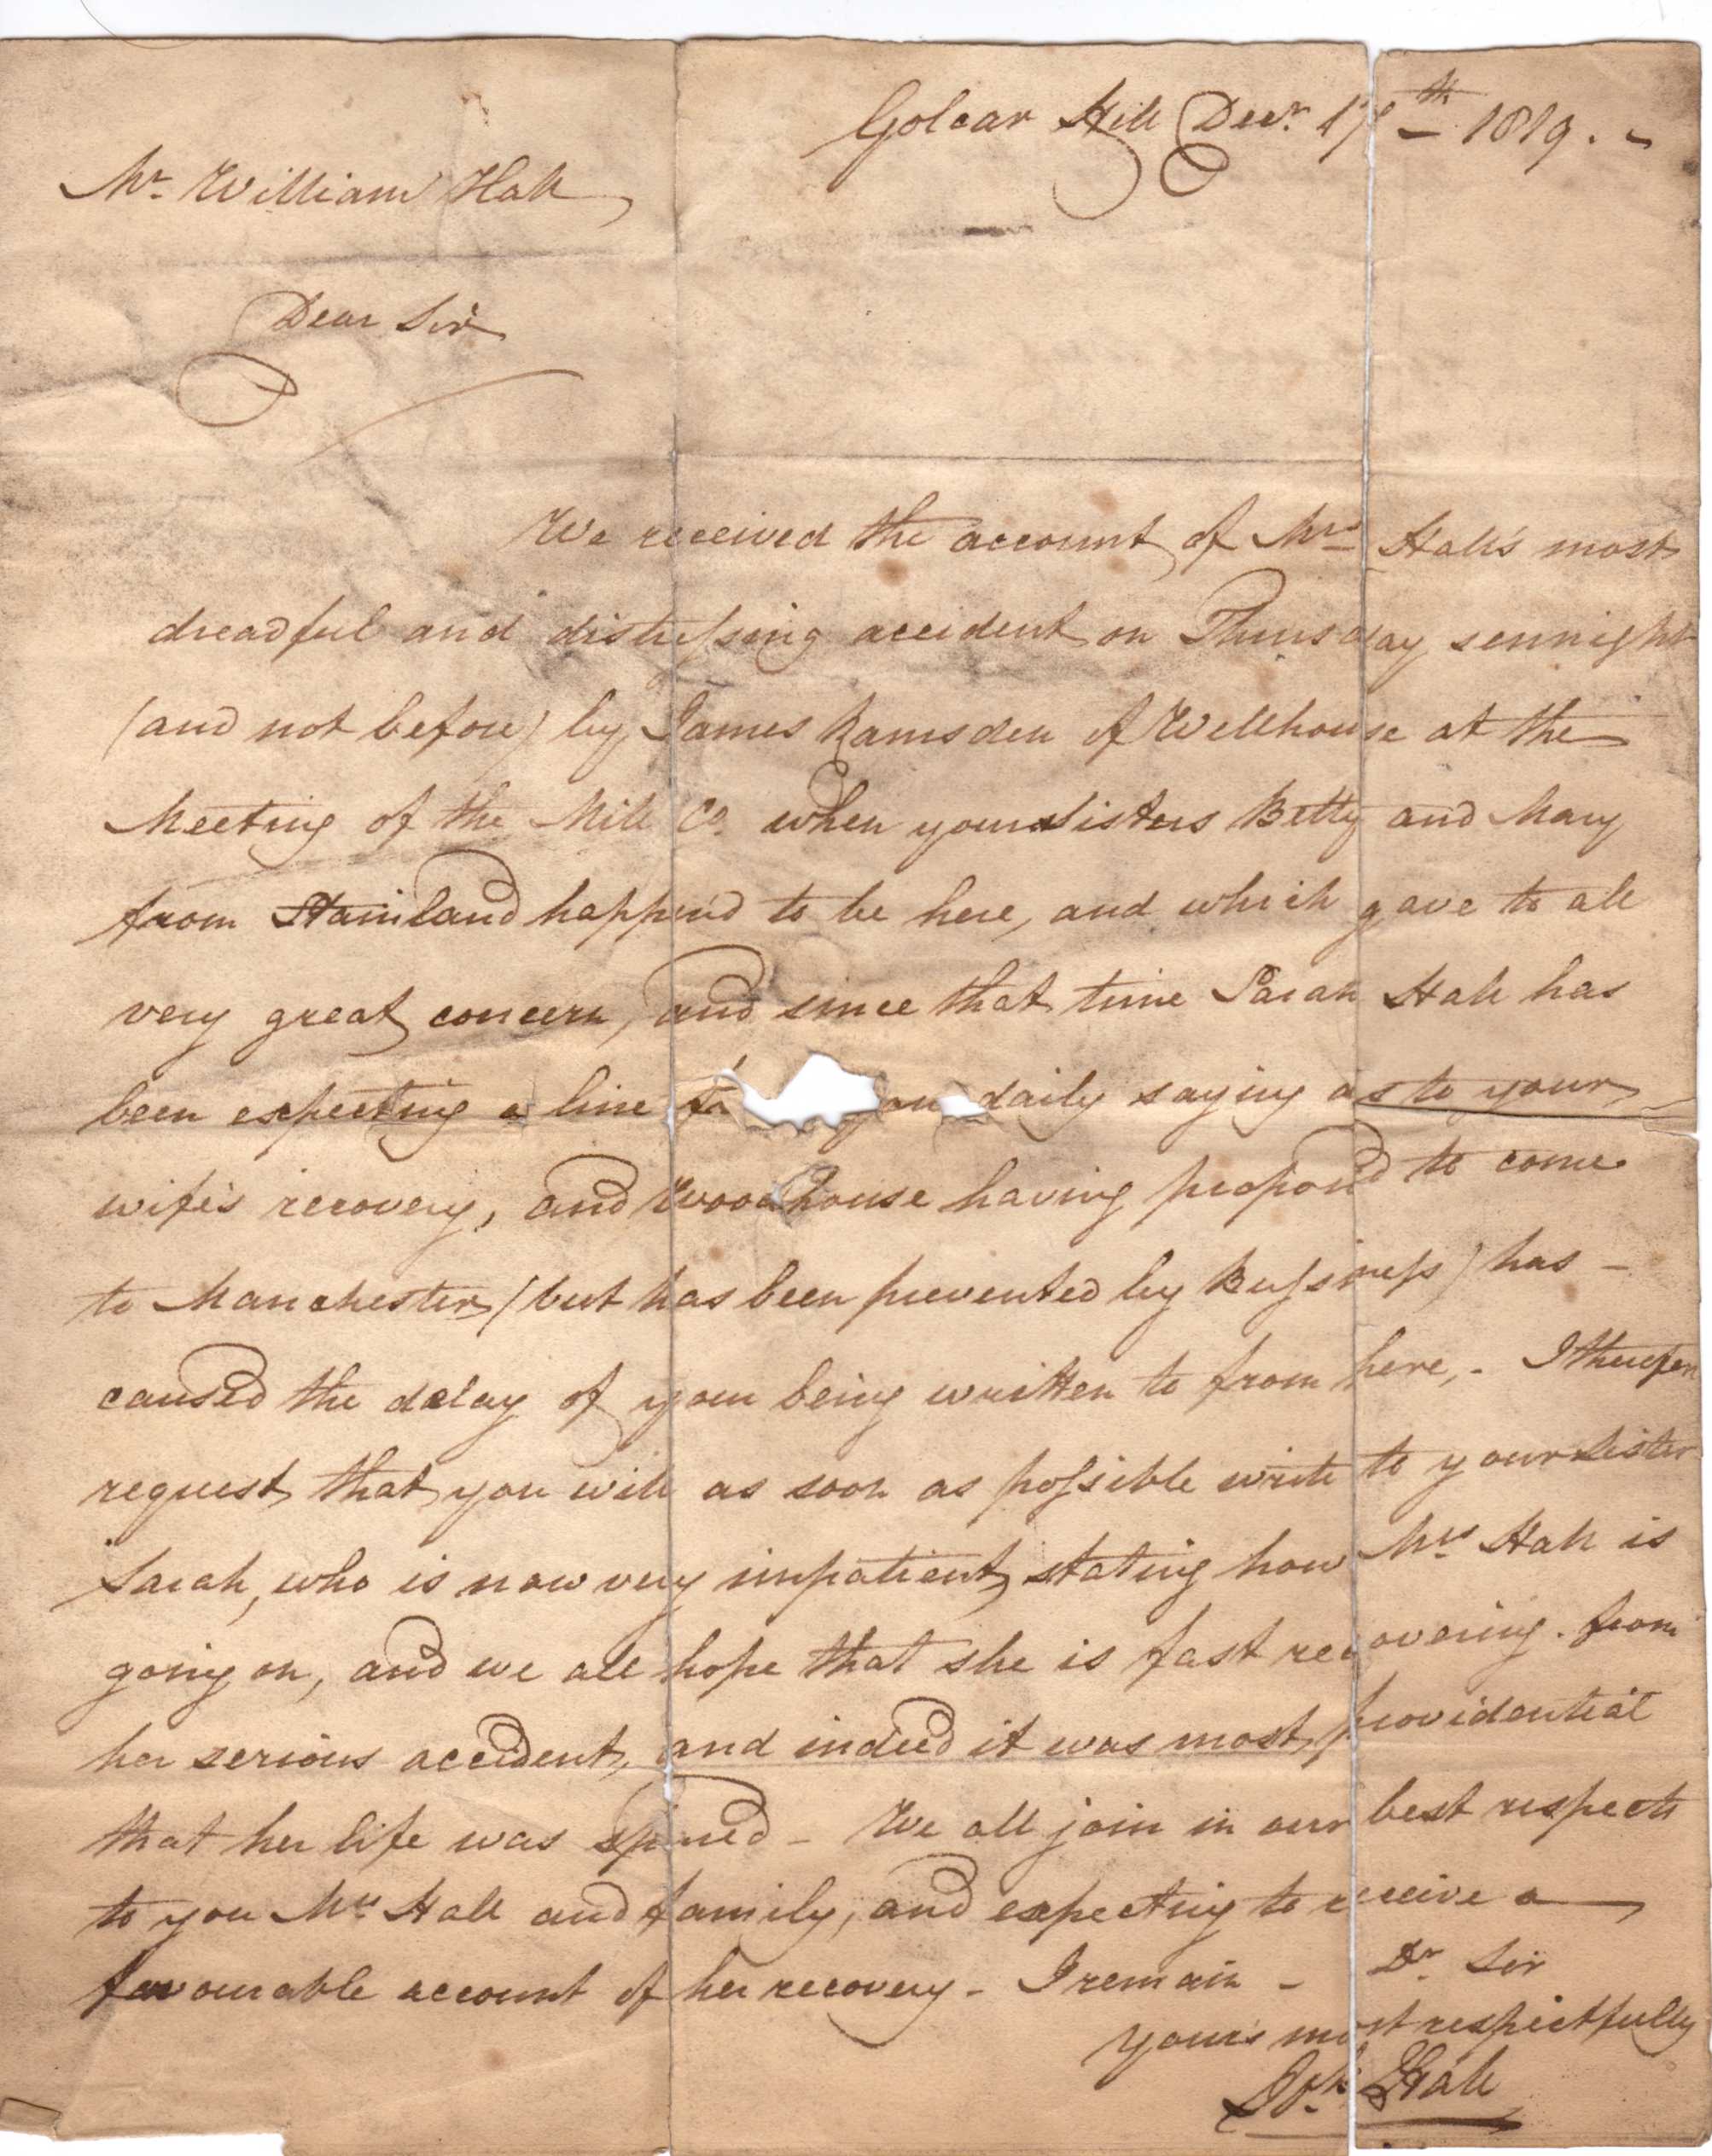 Golcar Hill Decr. 17th 1819. -
Mr. William Hall
Dear Sir
We received the account of Mrs Hall's most
dreadful and distressing accident on Thursday sennight
(and not before) by James Ramsden of Wellhouse at the
Meeting of the Mill Co. when your Sisters Betty and Mary
from Stainland happen'd to be here, and which gave to all
very great concern, and since that time Sarah Hall has
been expecting a line you daily saying as to your
wife's recovery, and Woodhouse having propos'd to come
to Manchester (but has been prevented by Bussiness) has -
caused the delay of your being written to from here, - I therefore
request that you will as soon as possible write to your Sister
Sarah, who is now very impatient, stating how Mrs Hall is
going on, and we all hope that she is fast recovering. from
her serious accident, and indeed it was most providential
that her life was spared - We all join in our best respects
to you Mrs Hall and family, and expecting to receive a
favourable account of her recovery - I remain - Dr Sir
Yours most respectfully
Hall